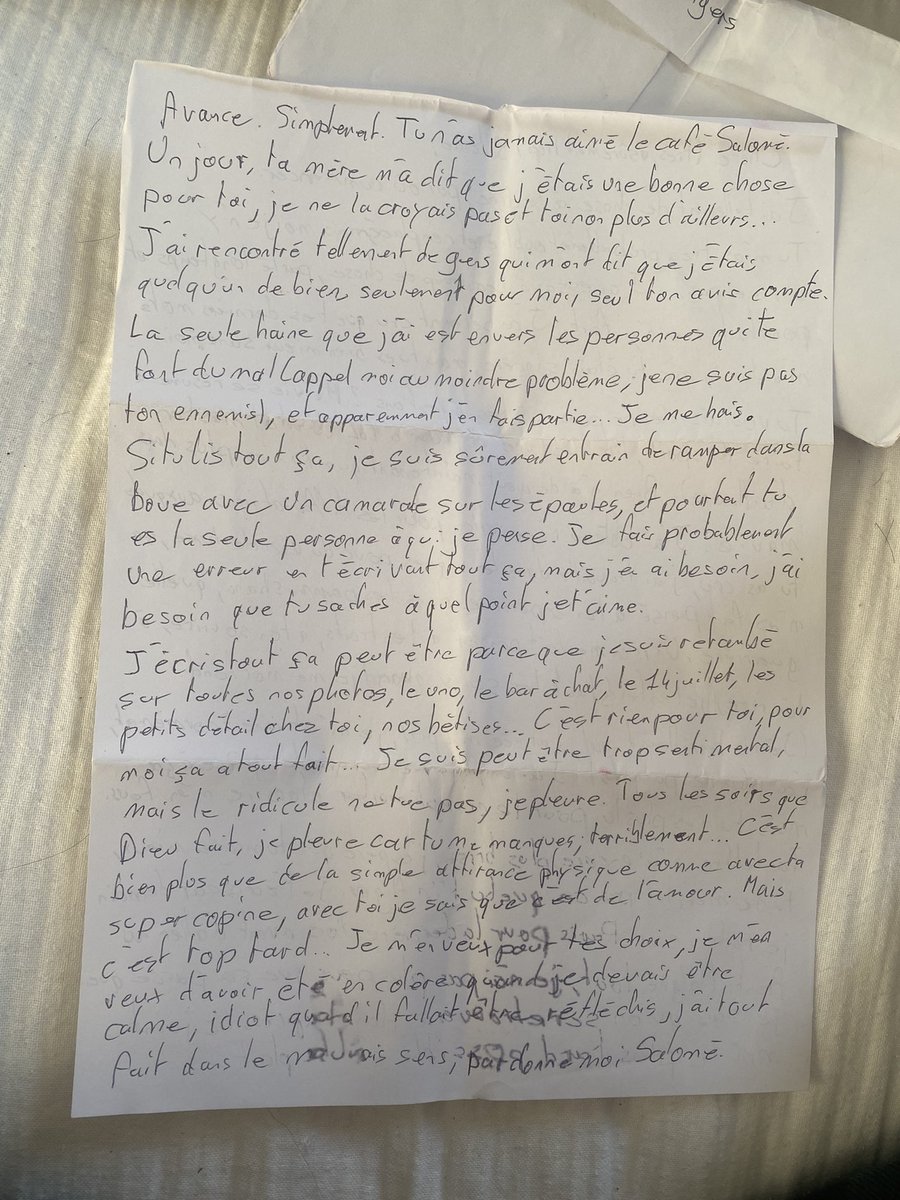 ges
Avance. Simplement. Tu n'as jamais aimé le café Salomé.
Un jour, ta mère m'a dit que j'étais une bonne chose
pour toi, je ne la croyais pas et toi non plus d'ailleurs...
J'ai rencontré tellement de gens qui m'ont dit que j'étais
quelqu'un de bien, seulement pour moi, seul ton avis compte.
La seule haine que j'ai est envers les personnes qui te
font du mal (appel moi au moindre problème, je ne suis pas
ton ennemis), et apparemment j'en fais partie... Je me hais.
Si tu lis tout ça, je suis sûrement entrain de ramper dans la
boue avec un camarade sur les épaules, et pourtant tu
es la seule personne à qui je pense. Je fais probablement
une erreur en t'écrivant tout ça, mais j'en ai besoin, j'ai
besoin que tu saches à quel point je t'aime.
J'écris tout ça peut être parce que je suis retombé
sur toutes nos photos, le uno, le bar à chat, le 14 juillet, les
petits détail chez toi, nos bêtises... C'est rien pour toi, pour
moi ça a tout fait... Je suis peut être trop sentimental,
mais le ridicule ne tue pas, je pleure. Tous les soirs que
Dieu fait, je pleure car tu me manques, terriblement... C'est
bien plus que de la simple attirance physique comme avec ta
super copine, avec toi je sais que c'est de l'amour. Mais
c'est trop tard... Je m'en veux pour tes choix, je m'en
veux d'avoir été en colère quand je devais être
calme, idiot quand il fallait être réfléchis, j'ai tout
fait dans le mauvais sens, pardonne moi Salomé.